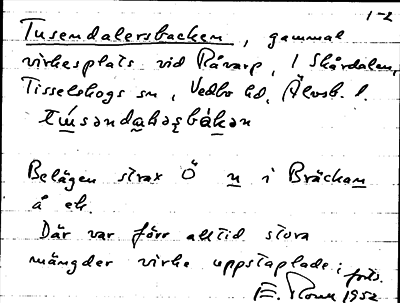 1-2
Tusendalersbacken, gammal
virkesplats vid Råvarp, i Skårdalen,
Tisselskogs sn, Vedbo hd, Älvsb. l.
Belägen strax Ö n i Bräckan
å ek.
Där var förr alltid stora
mängder virke uppstaplade i forts.
1952